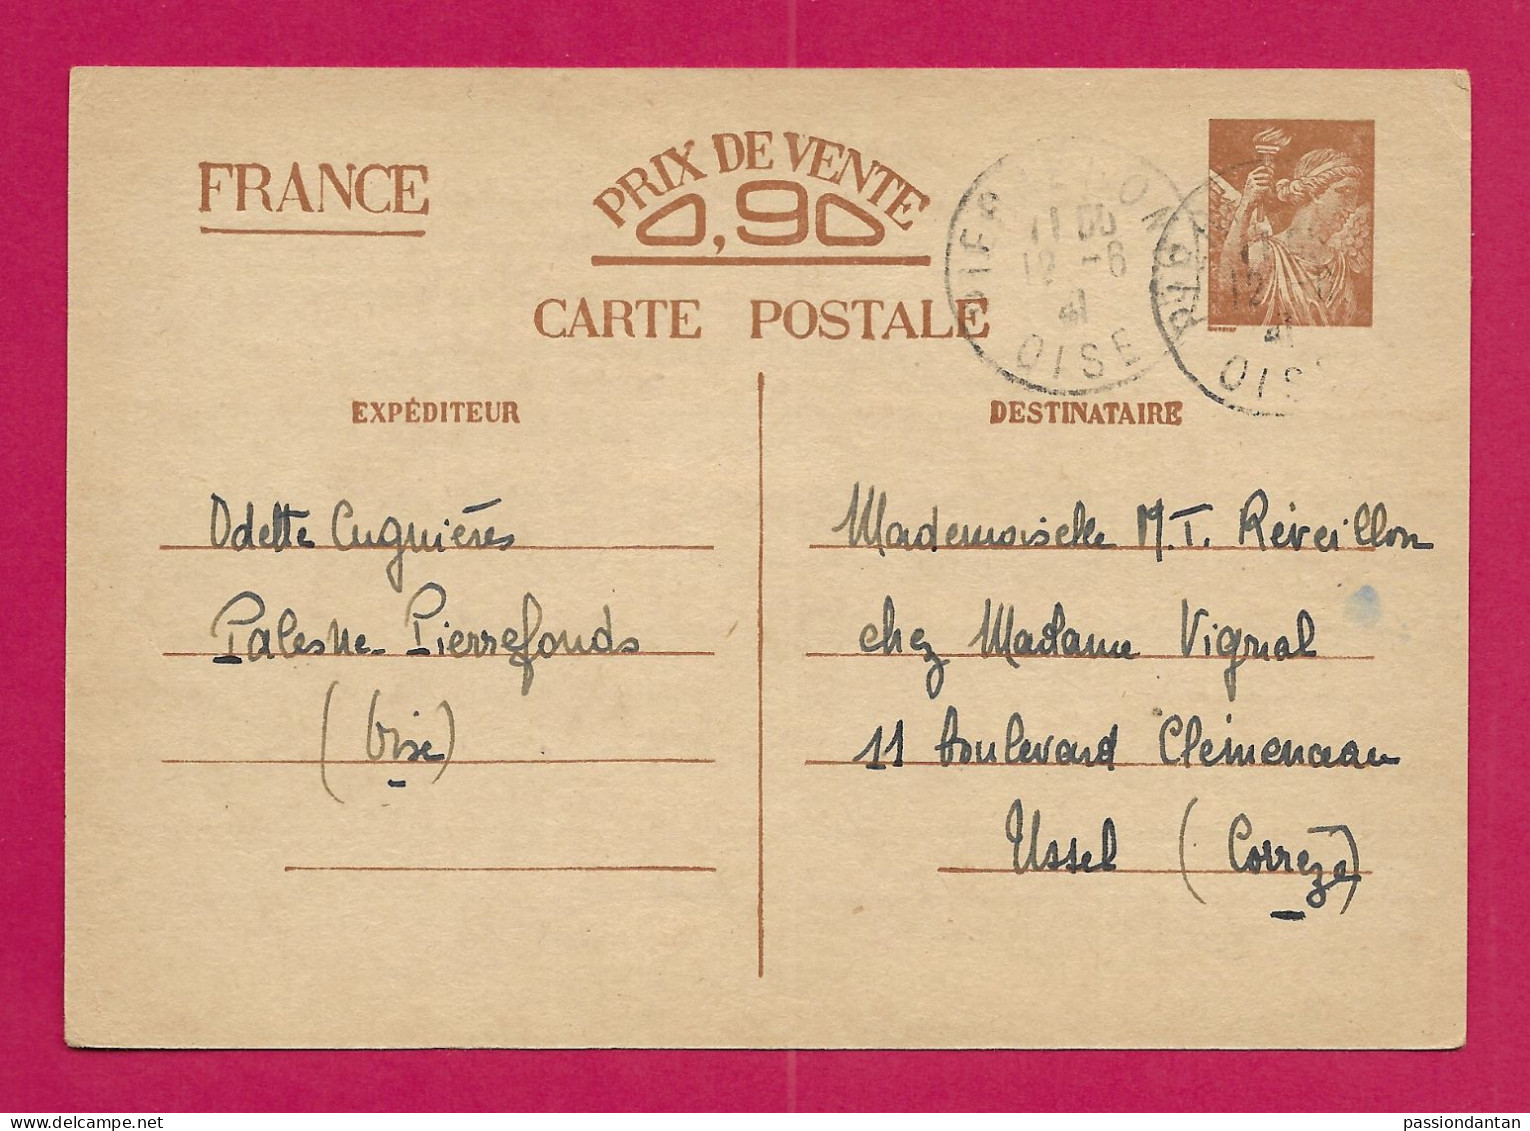 FRANCE
PRIX DE VENTE
0,90
CARTE POSTALE
11 00
12 -6
41
OISE
12
41
OIS
EXPÉDITEUR
DESTINATAIRE
Odette Cugnières
Palesne Pierrefonds
(Oise)
Mademoiselle M.T. Réveillon
chez Madame Vignal
11 boulevard Clémenceau
Ussel (Corrèze)
delcampe.net
passiondantan